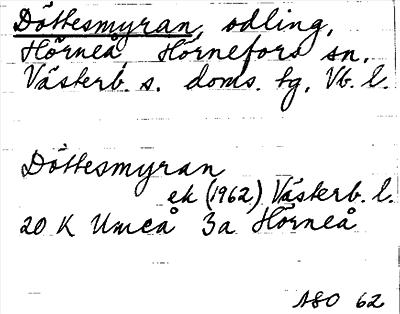 Döttesmyran, odling,
Hörneå, Hörnefors sn.
Västerb. s. doms. tg, Vb. l.
Döttesmyran
ek (1962) Västerb. l.
20 K Umeå 3a Hörneå
ASO 62